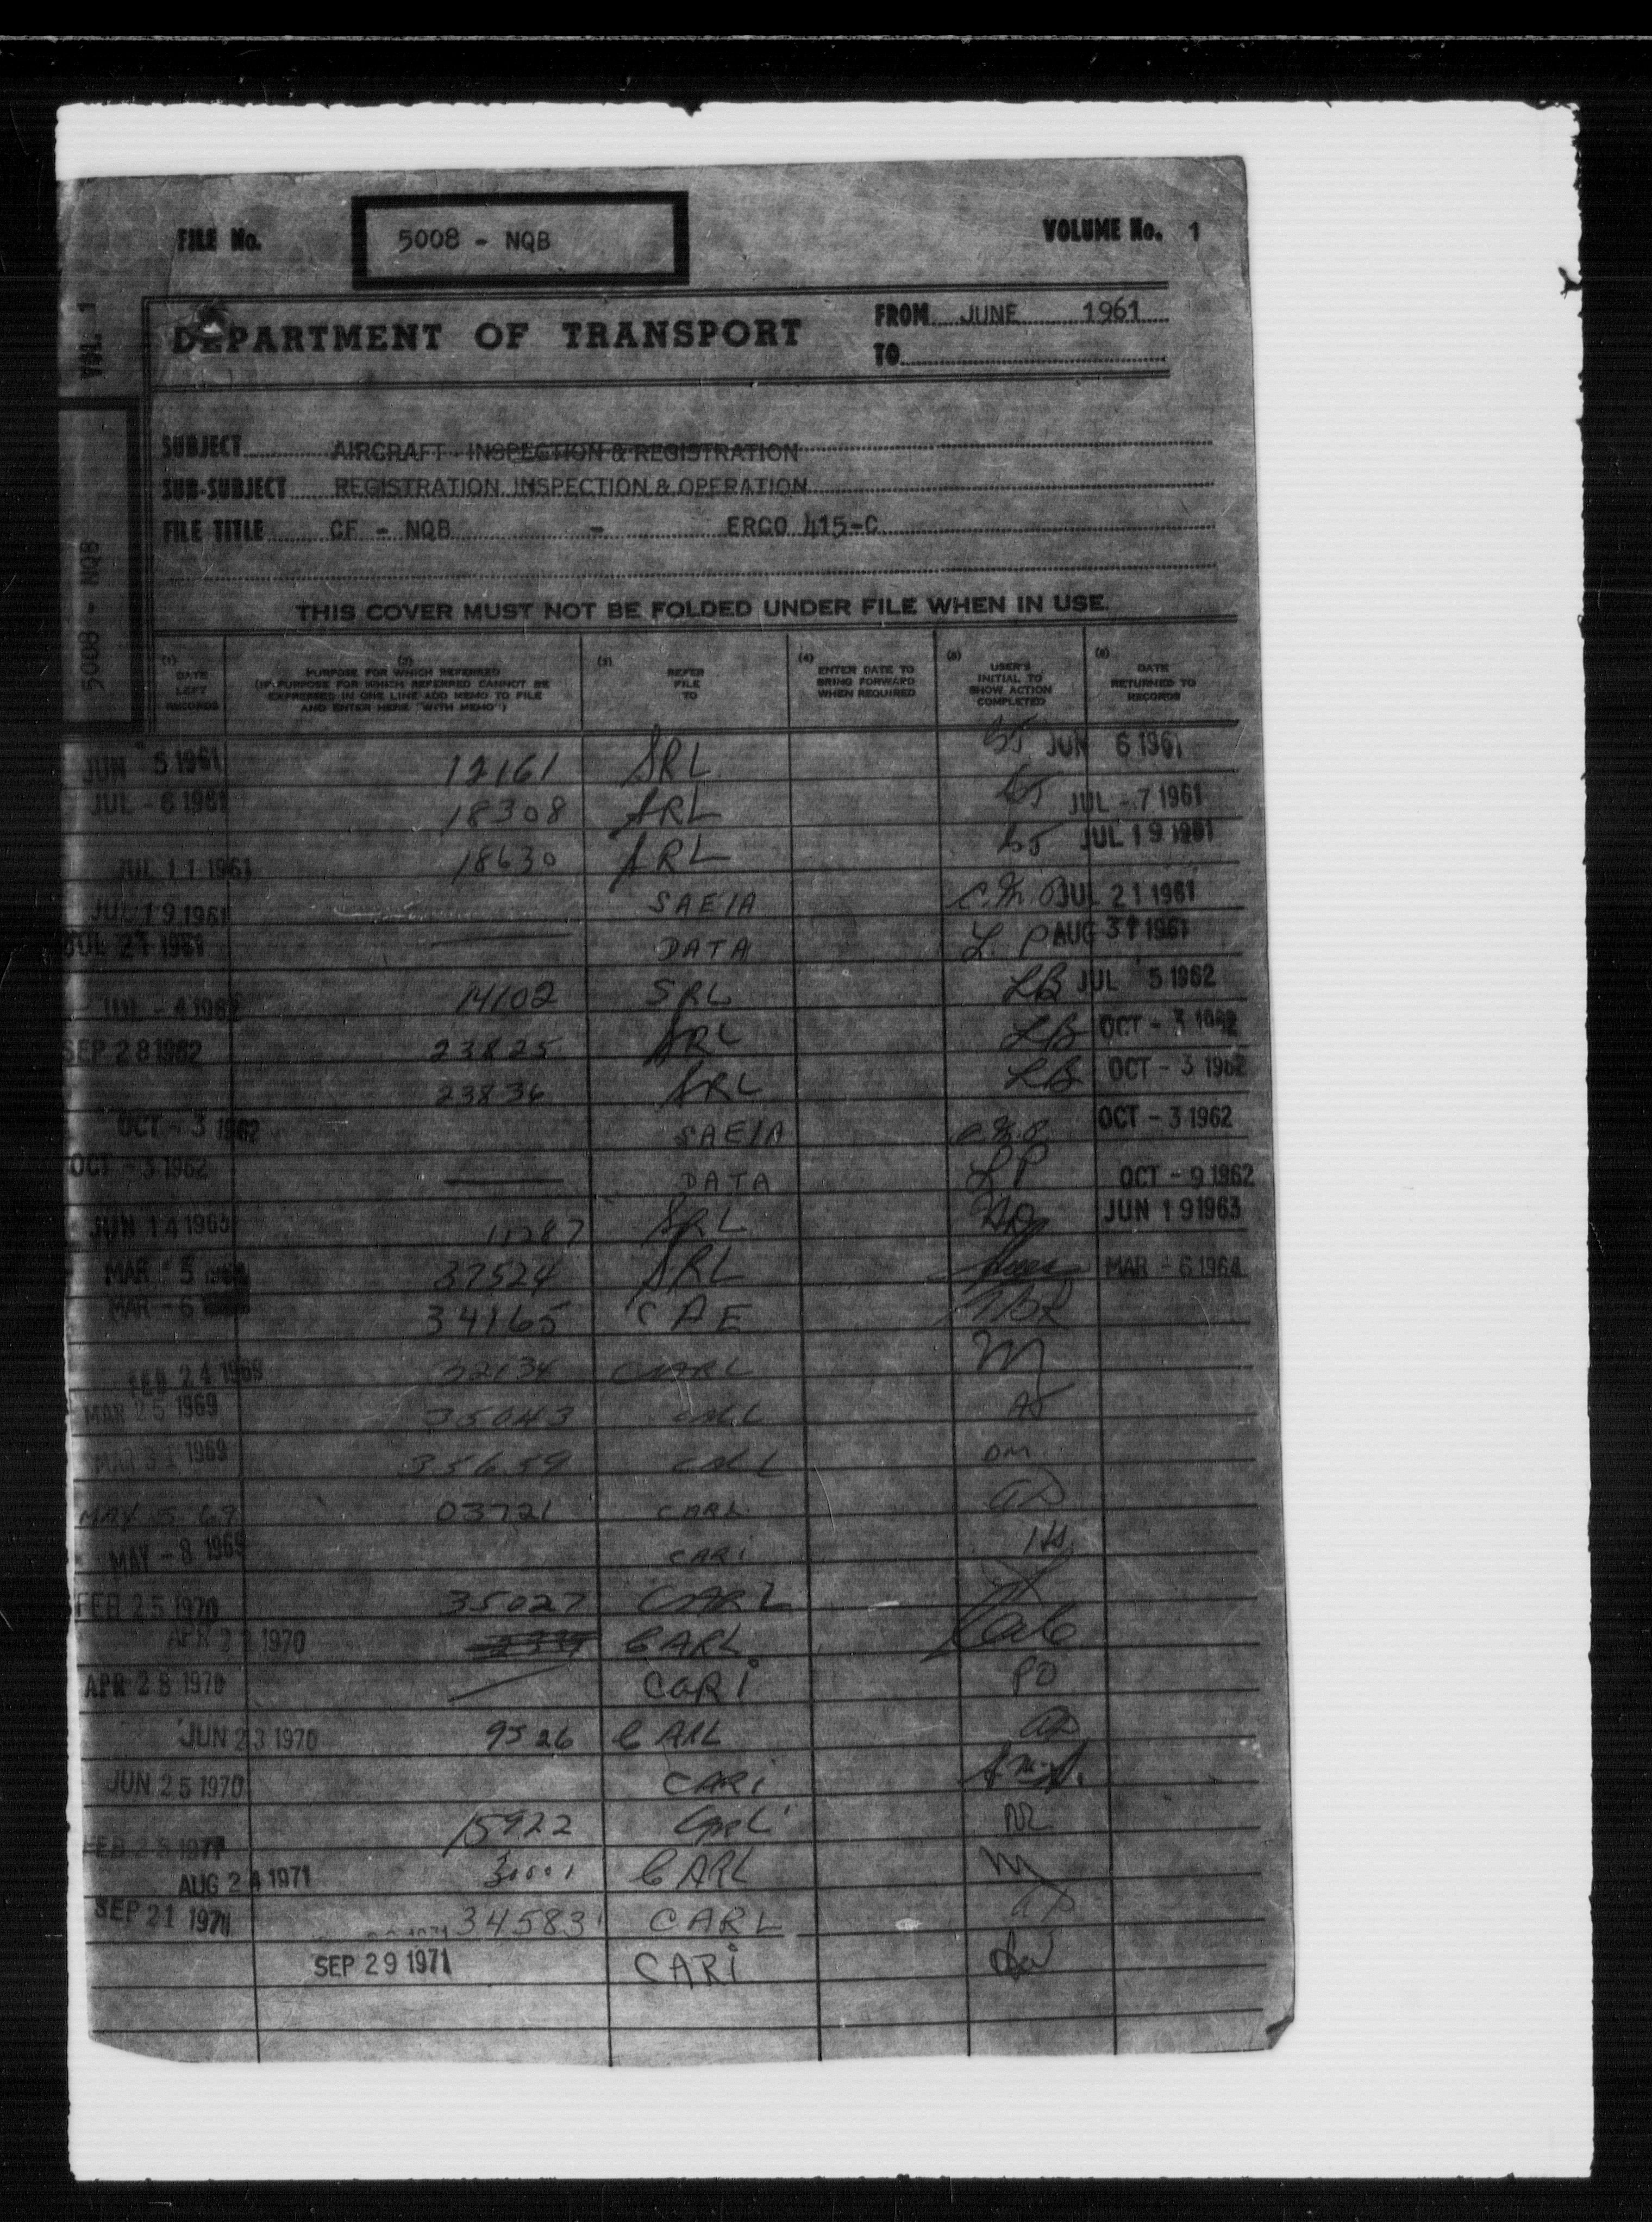 FILE No. 5008 - NQB VOLUME No. 1
VOL. 1
5008 - NQB
DEPARTMENT OF TRANSPORT
FROM JUNE 1961
TO
SUBJECT AIRCRAFT - INSPECTION & REGISTRATION
SUB-SUBJECT REGISTRATION, INSPECTION & OPERATION
FILE TITLE CF - NQB - ERCO 415-C
THIS COVER MUST NOT BE FOLDED UNDER FILE WHEN IN USE.
(1) DATE LEFT RECORDS
(2) PURPOSE FOR WHICH REFERRED (IF PURPOSE FOR WHICH REFERRED CANNOT BE EXPRESSED IN ONE LINE ADD MEMO TO FILE AND ENTER HERE "WITH MEMO")
(3) REFER FILE TO
(4) ENTER DATE TO BRING FORWARD WHEN REQUIRED
(5) USER'S INITIAL TO SHOW ACTION COMPLETED
(6) DATE RETURNED TO RECORDS
JUN 5 1961 12161 SRL JUN 6 1961
JUL - 6 1961 18308 SRL JUL - 7 1961
JUL 11 1961 18630 SRL JUL 19 1961
JUL 19 1961 SAEIA JUL 21 1961
JUL 21 1961 DATA L.P AUG 31 1961
JUL - 4 1962 14102 SRL LB JUL 5 1962
SEP 28 1962 23825 SRL LB OCT - 3 1962
23836 SRL LB OCT - 3 1962
OCT - 3 1962 SAEIA OCT - 3 1962
OCT - 3 1962 DATA LP OCT - 9 1962
JUN 14 1963 11287 SRL JUN 19 1963
MAR 5 37524 SRL MAR - 6 1964
MAR - 6 34165 CAE
FEB 24 1969 CARL M
MAR 25 1969 35043
MAR 31 1969 35659 DM
MAY 5 69 03721 CARL
MAY - 8 1969 CARi
FEB 25 1970 35027 CARL
APR 22 1970 CARL
APR 28 1970 CARi PO
JUN 23 1970 9526 CARL
JUN 25 1970 CARi
FEB 23 1971 15922
AUG 24 1971 CARL M
SEP 21 1971 34583 CARL
SEP 29 1971 CARi